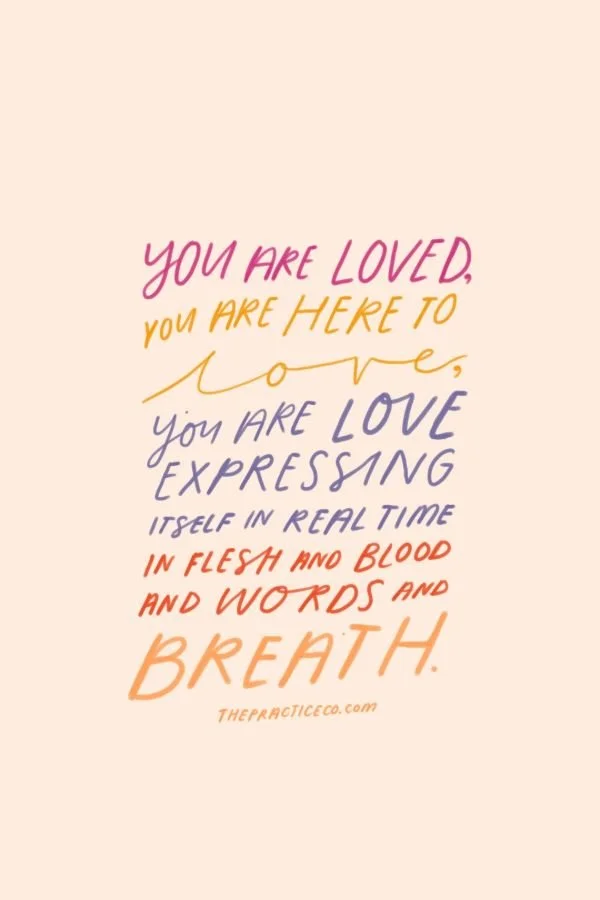 YOU ARE LOVED,
YOU ARE HERE TO
love,
you ARE LOVE
EXPRESSING
ITSELF IN REAL TIME
IN FLESH AND BLOOD
AND WORDS AND
BREATH.
THEPRACTICECO.COM